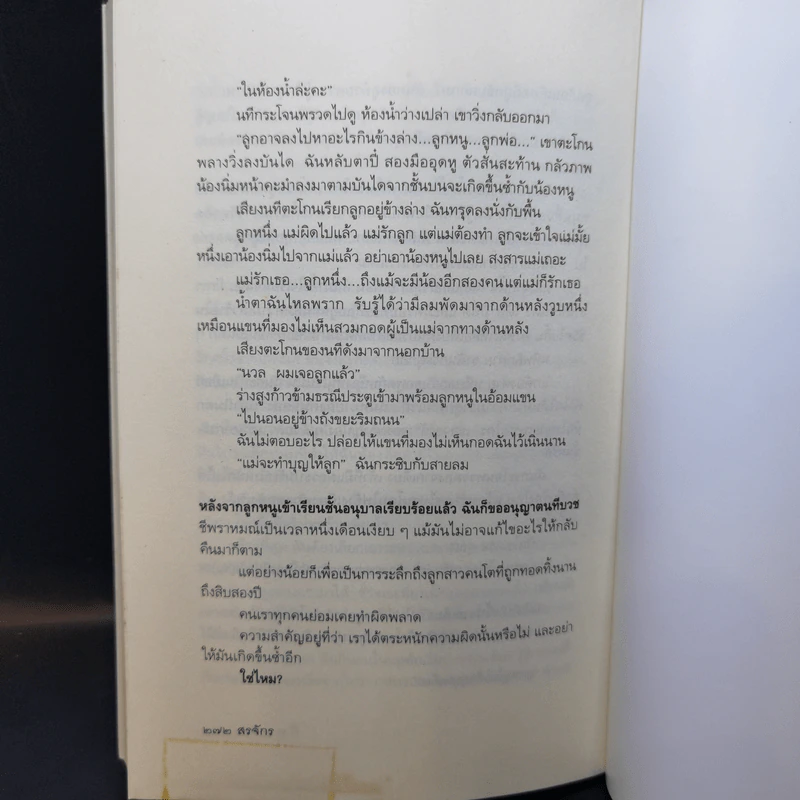 “ในห้องน้ำล่ะคะ”
นทีกระโจนพรวดไปดู ห้องน้ำว่างเปล่า เขาวิ่งกลับออกมา
“ลูกอาจลงไปหาอะไรกินข้างล่าง...ลูกหนู...ลูกพ่อ...” เขาตะโกน
พลางวิ่งลงบันได ฉันหลับตาปี๋ สองมืออุดหู ตัวสั่นสะท้าน กลัวภาพ
น้องนิ่มหน้าคะมำลงมาตามบันไดจากชั้นบนจะเกิดขึ้นซ้ำกับน้องหนู
เสียงนทีตะโกนเรียกลูกอยู่ข้างล่าง ฉันทรุดลงนั่งกับพื้น
ลูกหนึ่ง แม่ผิดไปแล้ว แม่รักลูก แต่แม่ต้องทำ ลูกจะเข้าใจแม่มั้ย
หนึ่งเอาน้องนิ่มไปจากแม่แล้ว อย่าเอาน้องหนูไปเลย สงสารแม่เถอะ
แม่รักเธอ...ลูกหนึ่ง...ถึงแม้จะมีน้องอีกสองคน แต่แม่ก็รักเธอ
น้ำตาฉันไหลพราก รับรู้ได้ว่ามีลมพัดมาจากด้านหลังวูบหนึ่ง
เหมือนแขนที่มองไม่เห็นสวมกอดผู้เป็นแม่จากทางด้านหลัง
เสียงตะโกนของนทีดังมาจากนอกบ้าน
“นวล ผมเจอลูกแล้ว”
ร่างสูงก้าวข้ามธรณีประตูเข้ามาพร้อมลูกหนูในอ้อมแขน
“ไปนอนอยู่ข้างถังขยะริมถนน”
ฉันไม่ตอบอะไร ปล่อยให้แขนที่มองไม่เห็นกอดฉันไว้เนิ่นนาน
“แม่จะทำบุญให้ลูก” ฉันกระซิบกับสายลม
หลังจากลูกหนูเข้าเรียนชั้นอนุบาลเรียบร้อยแล้ว ฉันก็ขออนุญาตนทีบวช
ชีพราหมณ์เป็นเวลาหนึ่งเดือนเงียบ ๆ แม้มันไม่อาจแก้ไขอะไรให้กลับ
คืนมาก็ตาม
แต่อย่างน้อยก็เพื่อเป็นการระลึกถึงลูกสาวคนโตที่ถูกทอดทิ้งนาน
ถึงสิบสองปี
คนเราทุกคนย่อมเคยทำผิดพลาด
ความสำคัญอยู่ที่ว่า เราได้ตระหนักความผิดนั้นหรือไม่ และอย่า
ให้มันเกิดขึ้นซ้ำอีก
ใช่ไหม?
๒๗๒ สรจักร